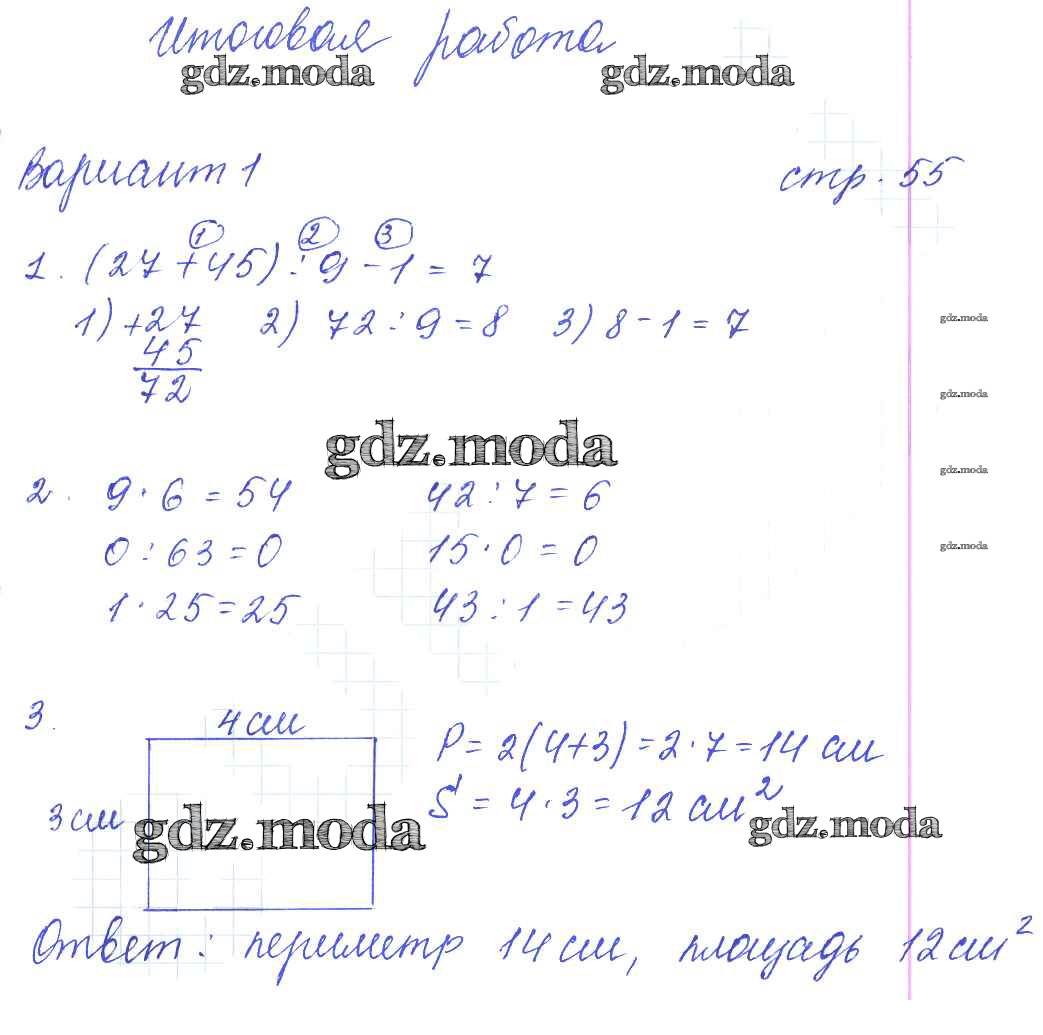 Итоговая работа
gdz.moda gdz.moda
Вариант 1 стр. 55
① ② ③
1. (27+45):9-1=7
1) +27 2) 72:9=8 3) 8-1=7
45
72
gdz.moda
gdz.moda
gdz.moda
2. 9·6=54 42:7=6
gdz.moda
0:63=0 15·0=0
gdz.moda
1·25=25 43:1=43
3. 4 см
P=2(4+3)=2·7=14 см
3 см S=4·3=12 см²
gdz.moda gdz.moda
Ответ: периметр 14 см, площадь 12 см²